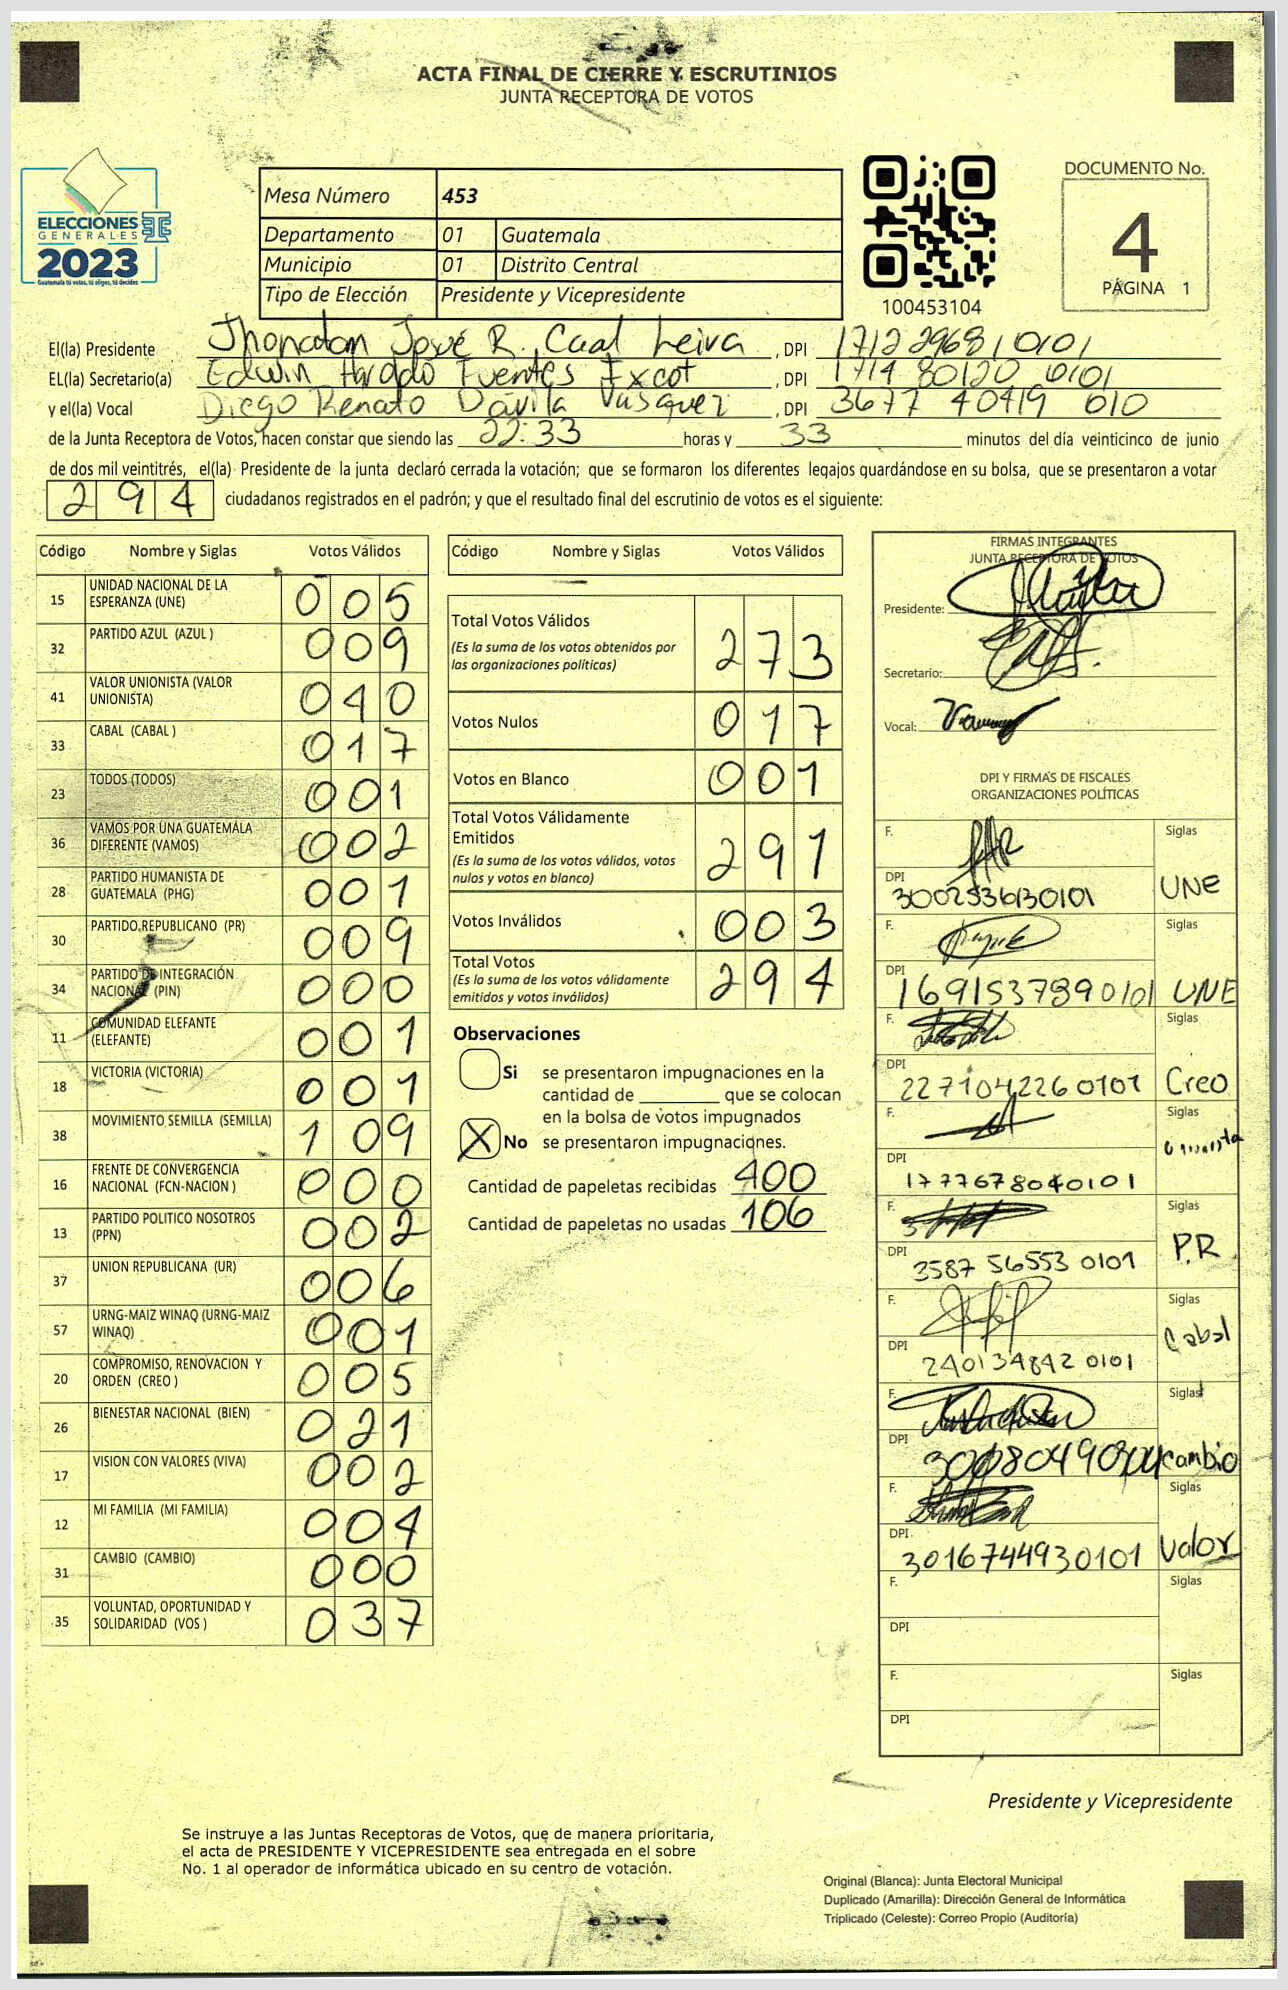 ACTA FINAL DE CIERRE Y ESCRUTINIOS
JUNTA RECEPTORA DE VOTOS
ELECCIONES
GENERALES
2023
Guatemala tú votas, tú eliges, tú decides
Mesa Número 453
Departamento 01 Guatemala
Municipio 01 Distrito Central
Tipo de Elección Presidente y Vicepresidente
100453104
DOCUMENTO No.
4
PÁGINA 1
El(la) Presidente Jhonatan Josué R. Caal Leiva , DPI 1712296810101
EL(la) Secretario(a) Edwin Haroldo Fuentes Ixcot , DPI 1714 80120 0101
y el(la) Vocal Diego Renato Dávila Vásquez , DPI 3677 40419 010
de la Junta Receptora de Votos, hacen constar que siendo las 22:33 horas y 33 minutos del día veinticinco de junio
de dos mil veintitrés, el(la) Presidente de la junta declaró cerrada la votación; que se formaron los diferentes legajos guardándose en su bolsa, que se presentaron a votar
294 ciudadanos registrados en el padrón; y que el resultado final del escrutinio de votos es el siguiente:
Código Nombre y Siglas Votos Válidos
15 UNIDAD NACIONAL DE LA ESPERANZA (UNE) 005
32 PARTIDO AZUL (AZUL ) 009
41 VALOR UNIONISTA (VALOR UNIONISTA) 040
33 CABAL (CABAL ) 017
23 TODOS (TODOS) 001
36 VAMOS POR UNA GUATEMALA DIFERENTE (VAMOS) 002
28 PARTIDO HUMANISTA DE GUATEMALA (PHG) 001
30 PARTIDO REPUBLICANO (PR) 009
34 PARTIDO DE INTEGRACIÓN NACIONAL (PIN) 000
11 COMUNIDAD ELEFANTE (ELEFANTE) 001
18 VICTORIA (VICTORIA) 001
38 MOVIMIENTO SEMILLA (SEMILLA) 109
16 FRENTE DE CONVERGENCIA NACIONAL (FCN-NACION ) 000
13 PARTIDO POLITICO NOSOTROS (PPN) 002
37 UNION REPUBLICANA (UR) 006
57 URNG-MAIZ WINAQ (URNG-MAIZ WINAQ) 001
20 COMPROMISO, RENOVACION Y ORDEN (CREO ) 005
26 BIENESTAR NACIONAL (BIEN) 021
17 VISION CON VALORES (VIVA) 002
12 MI FAMILIA (MI FAMILIA) 004
31 CAMBIO (CAMBIO) 000
35 VOLUNTAD, OPORTUNIDAD Y SOLIDARIDAD (VOS ) 037
Código Nombre y Siglas Votos Válidos
Total Votos Válidos 273
(Es la suma de los votos obtenidos por
las organizaciones políticas)
Votos Nulos 017
Votos en Blanco 001
Total Votos Válidamente
Emitidos 291
(Es la suma de los votos válidos, votos
nulos y votos en blanco)
Votos Inválidos 003
Total Votos 294
(Es la suma de los votos válidamente
emitidos y votos inválidos)
Observaciones
Si se presentaron impugnaciones en la
cantidad de ________ que se colocan
en la bolsa de votos impugnados
X No se presentaron impugnaciones.
Cantidad de papeletas recibidas 400
Cantidad de papeletas no usadas 106
FIRMAS INTEGRANTES
JUNTA RECEPTORA DE VOTOS
Presidente:
Secretario:
Vocal:
DPI Y FIRMAS DE FISCALES
ORGANIZACIONES POLÍTICAS
F. Siglas
DPI 3002536130101 UNE
F. Siglas
DPI 1691537890101 UNE
F. Siglas
DPI 2271042260101 Creo
F. Siglas
DPI 1777678040101
F. Siglas
DPI 3587 56553 0101 P.R
F. Siglas
DPI 240134842 0101 Cabal
F. Siglas
DPI cambio
F. Siglas
DPI 3016744930101 Valor
F. Siglas
DPI
F. Siglas
DPI
Presidente y Vicepresidente
Se instruye a las Juntas Receptoras de Votos, que de manera prioritaria,
el acta de PRESIDENTE Y VICEPRESIDENTE sea entregada en el sobre
No. 1 al operador de informática ubicado en su centro de votación.
Original (Blanca): Junta Electoral Municipal
Duplicado (Amarilla): Dirección General de Informática
Triplicado (Celeste): Correo Propio (Auditoría)